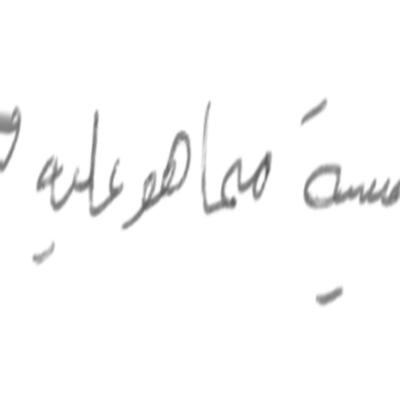 مما هو عليه